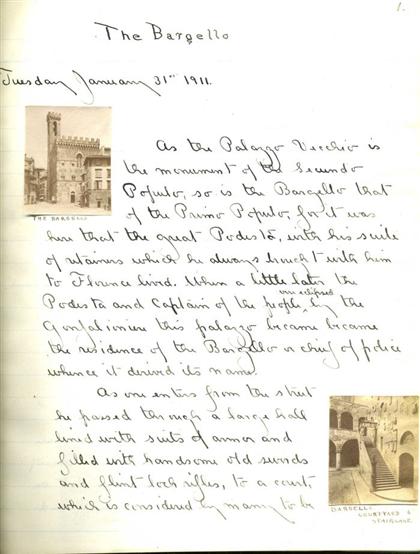 1.
The Bargello
Tuesday January 31st 1911.
THE BARGELLO
As the Palazzo Vecchio is
the monument of the Secundo
Populo, so is the Bargello that
of the Primo Populo, for it was
here that the great Podestà, with his suite
of retainers which he always brought with him
to Florence lived. When a little later the
Podesta and Captain of the people were eclipsed by the
Gonfalioniere this palazzo became became
the residence of the Bargello or chief of police
whence it derived its name.
As one enters from the street
he passed through a large hall
lined with suits of armor and
filled with handsome old swords
and flint lock rifles, to a court
which is considered by many to be
BARGELLO
COURTYARD &
STAIRCASE